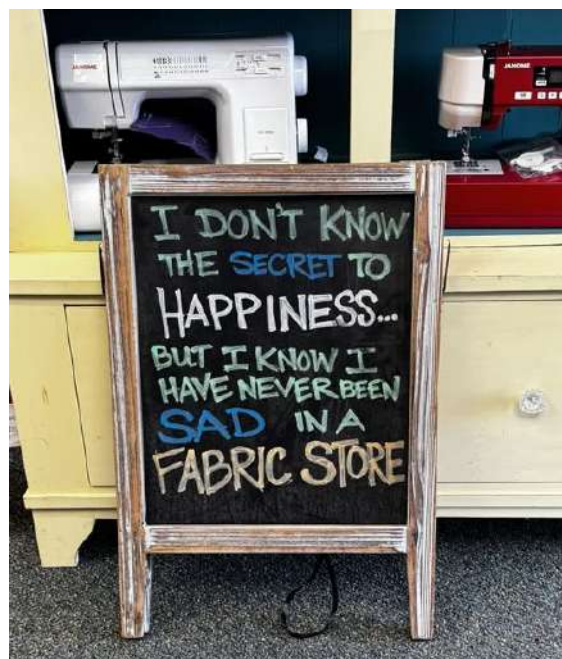 JANOME
JANOME
I DON'T KNOW
THE SECRET TO
HAPPINESS...
BUT I KNOW I
HAVE NEVER BEEN
SAD IN A
FABRIC STORE